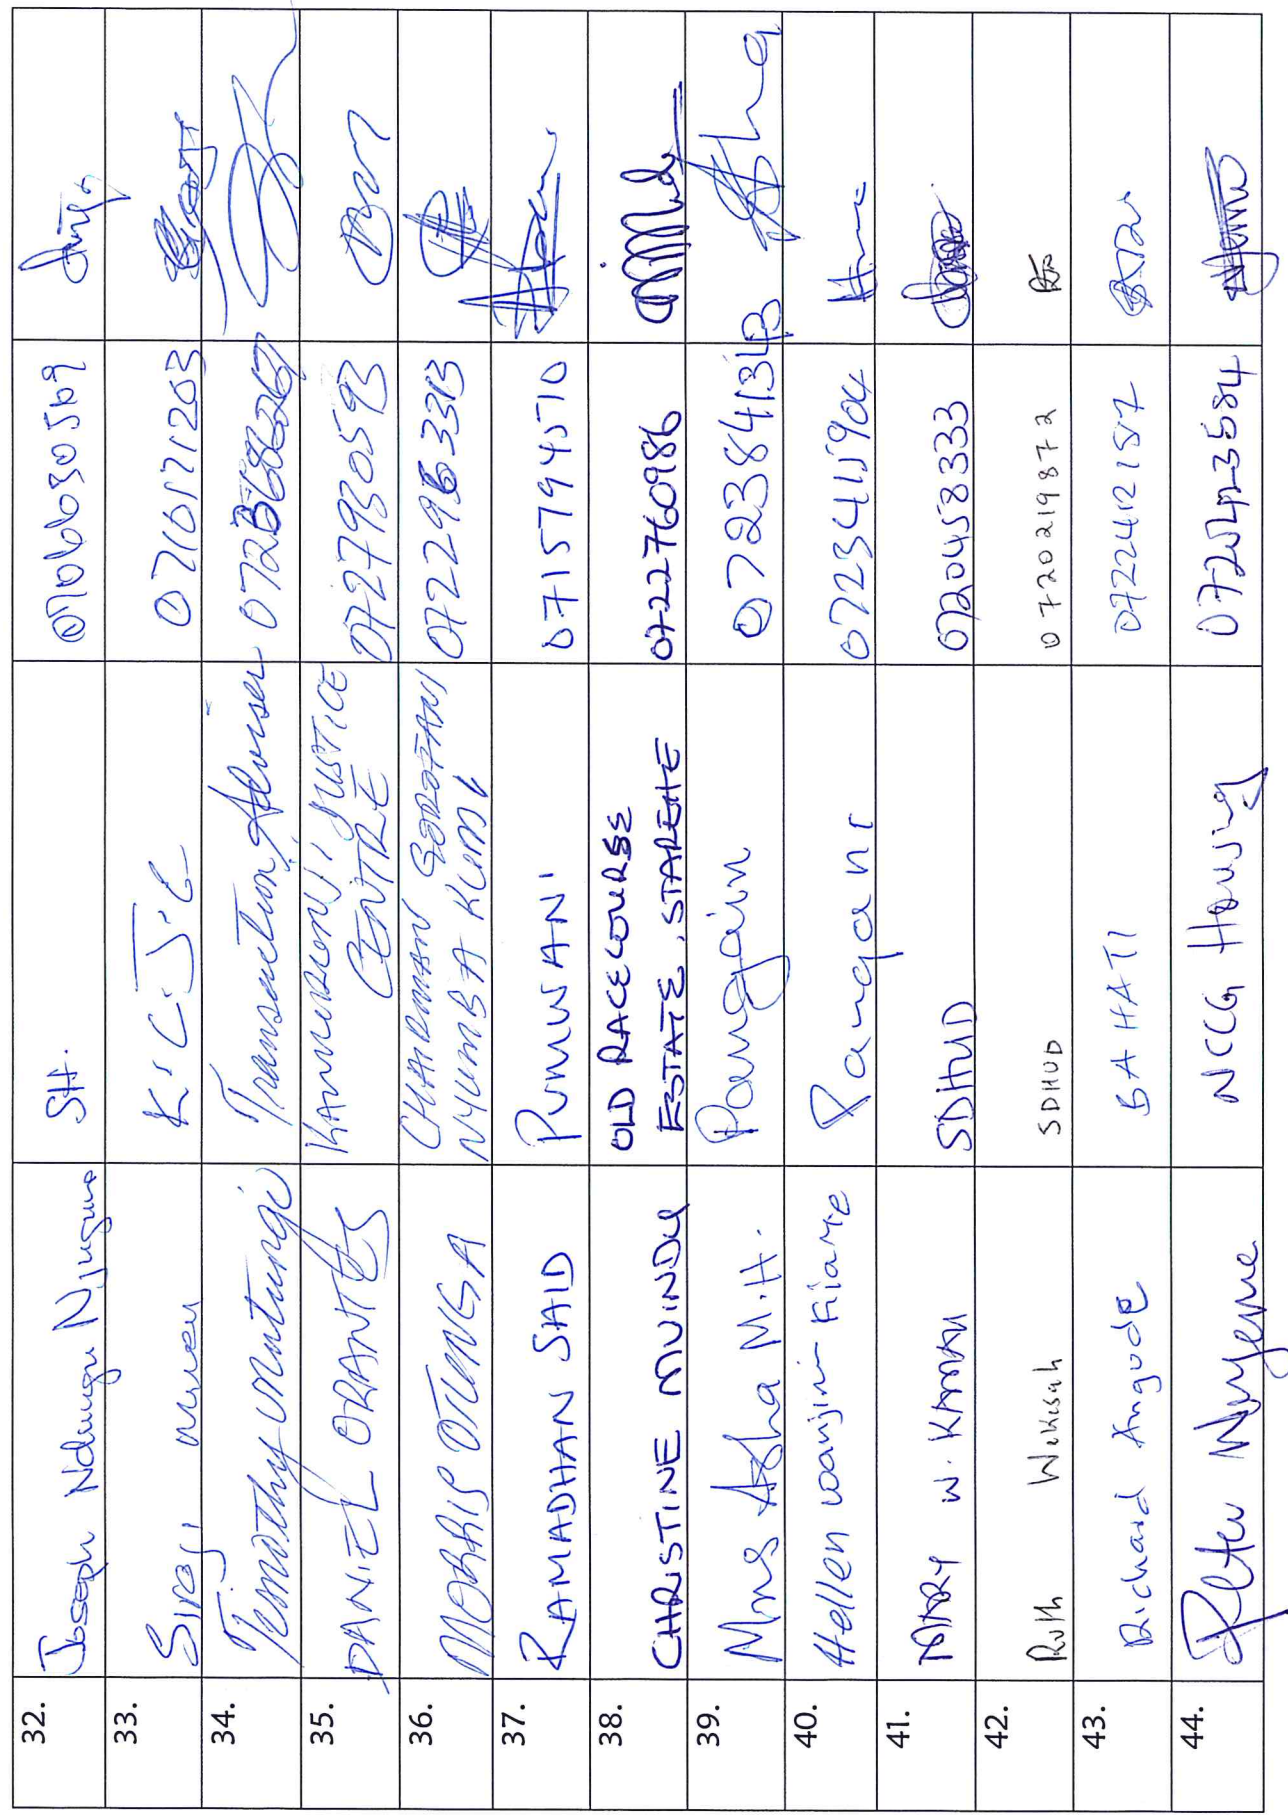 32. Joseph Ndungu Njuguna SH. 0706630569
33. Siraji K.C.J.C 0710171203
34. Timothy Mutungi Transaction Adviser
35. DANIEL ORANTES KAMUKUNJI JUSTICE
CENTRE 0727930593
36. MORRIS OTUNGA CHAIRMAN GOROFANI
NYUMBA KUMI 0722963313
37. RAMADHAN SAID PUMWANI 0715794570
38. CHRISTINE MUINDU OLD RACECOURSE
ESTATE, STAREHE 0722760986
39. Mrs Asha M.H. Pangani 0723841343
40. Hellen wanjiru Kiame Pangani 0723415904
41. MARY W. KAMAU SDHUD 0720458333
42. Ruth Wekesah SDHUD 0720219872
43. Richard Angode BAHATI 0722412157
44. Peter NCCG Housing